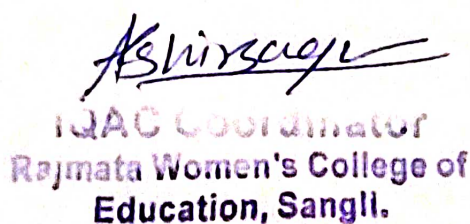 IQAC Coordinator
Rajmata Women's College of
Education, Sangli.